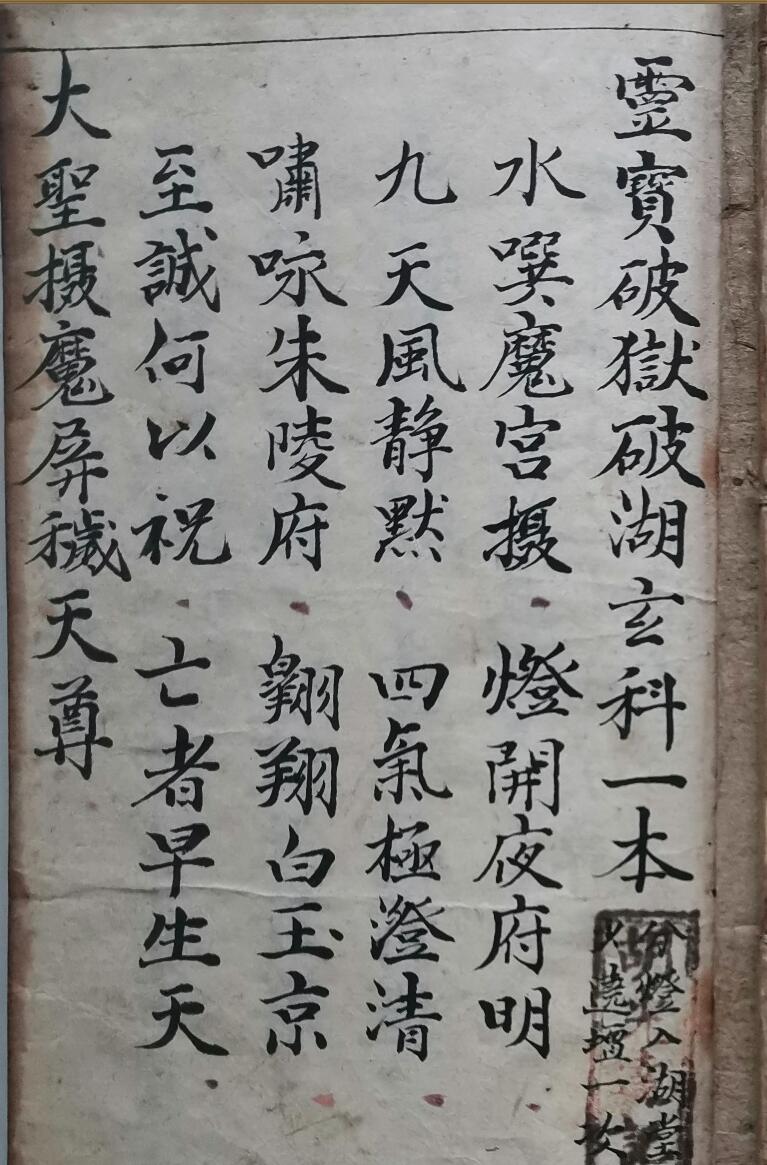 霊寶破獄破湖玄科一本
分燈入湖堂
遶壇一次
水噀魔宫摄 燈開夜府明
九天風静黙 四氣極澄清
嘯咏朱陵府 翱翔白玉京
至誠何以祝 亡者早生天
大聖摄魔屏穢天尊